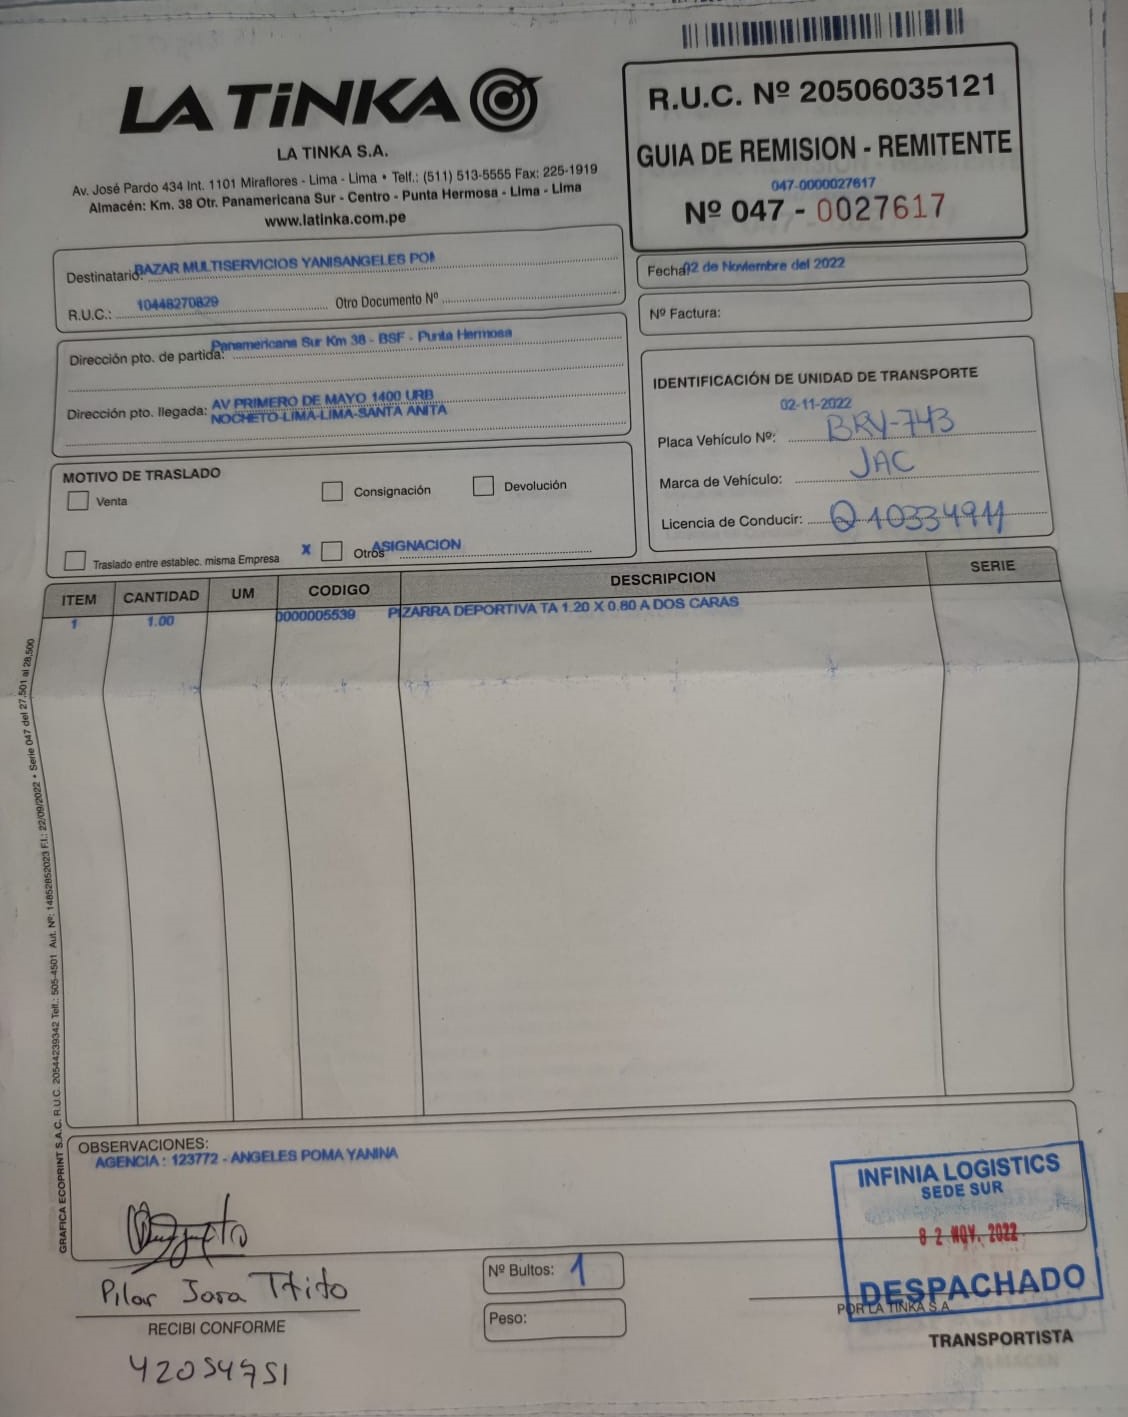 LA TiNKA
LA TINKA S.A.
Av. José Pardo 434 Int. 1101 Miraflores - Lima - Lima • Telf.: (511) 513-5555 Fax: 225-1919
Almacén: Km. 38 Otr. Panamericana Sur - Centro - Punta Hermosa - Lima - Lima
www.latinka.com.pe
R.U.C. Nº 20506035121
GUIA DE REMISION - REMITENTE
047-0000027617
Nº 047 - 0027617
Destinatario: BAZAR MULTISERVICIOS YANISANGELES POM
R.U.C.: 10448270829 Otro Documento Nº
Fecha: 02 de Noviembre del 2022
Nº Factura:
Dirección pto. de partida: Panamericana Sur Km 38 - BSF - Punta Hermosa
Dirección pto. llegada: AV PRIMERO DE MAYO 1400 URB
NOCHETO-LIMA-LIMA-SANTA ANITA
IDENTIFICACIÓN DE UNIDAD DE TRANSPORTE
02-11-2022
Placa Vehículo Nº: BRY-743
Marca de Vehículo: JAC
Licencia de Conducir: Q10334911
MOTIVO DE TRASLADO
Venta Consignación Devolución
Traslado entre establec. misma Empresa X Otros ASIGNACION
ITEM CANTIDAD UM CODIGO DESCRIPCION SERIE
1 1.00 0000005539 PIZARRA DEPORTIVA TA 1.20 X 0.80 A DOS CARAS
GRAFICA ECOPRINT S.A.C. R.U.C. 20544239342 Telf.: 505-4501 Aut. Nº: 14852852023 F.I.: 22/09/2022 • Serie 047 del 27,501 al 28,500
OBSERVACIONES:
AGENCIA : 123772 - ANGELES POMA YANINA
Pilar Jora Ttito
RECIBI CONFORME
42054751
Nº Bultos: 1
Peso:
INFINIA LOGISTICS
SEDE SUR
02 NOV. 2022
DESPACHADO
POR LA TINKA S.A.
TRANSPORTISTA